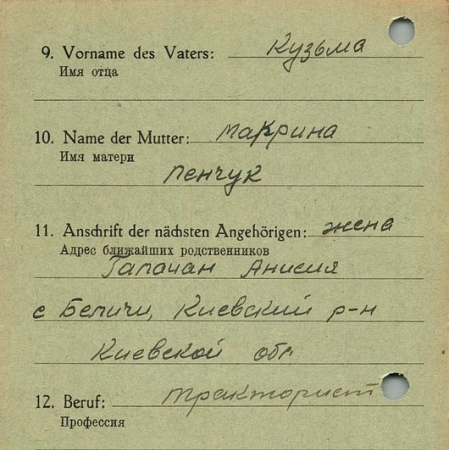 9. Vorname des Vaters: Кузьма
Имя отца
10. Name der Mutter: Макрина
Имя матери
Пенчук
11. Anschrift der nächsten Angehörigen: жена
Адрес ближайших родственников
Гапочан Анисия
с Беличи, Киевский р-н
Киевской обл
12. Beruf: тракторист
Профессия